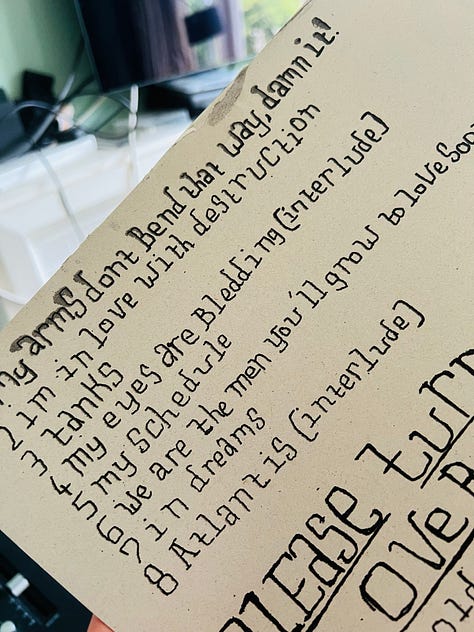 My arms dont Bend that way, damn it!
2 im in love with destruction
3 tanks
4 my eyes are Bledding (interlude)
5 my schedule
6 We are the men you'll grow to love Soon
7 in dreams
8 Atlantis (interlude)
PlEase turn
OVER